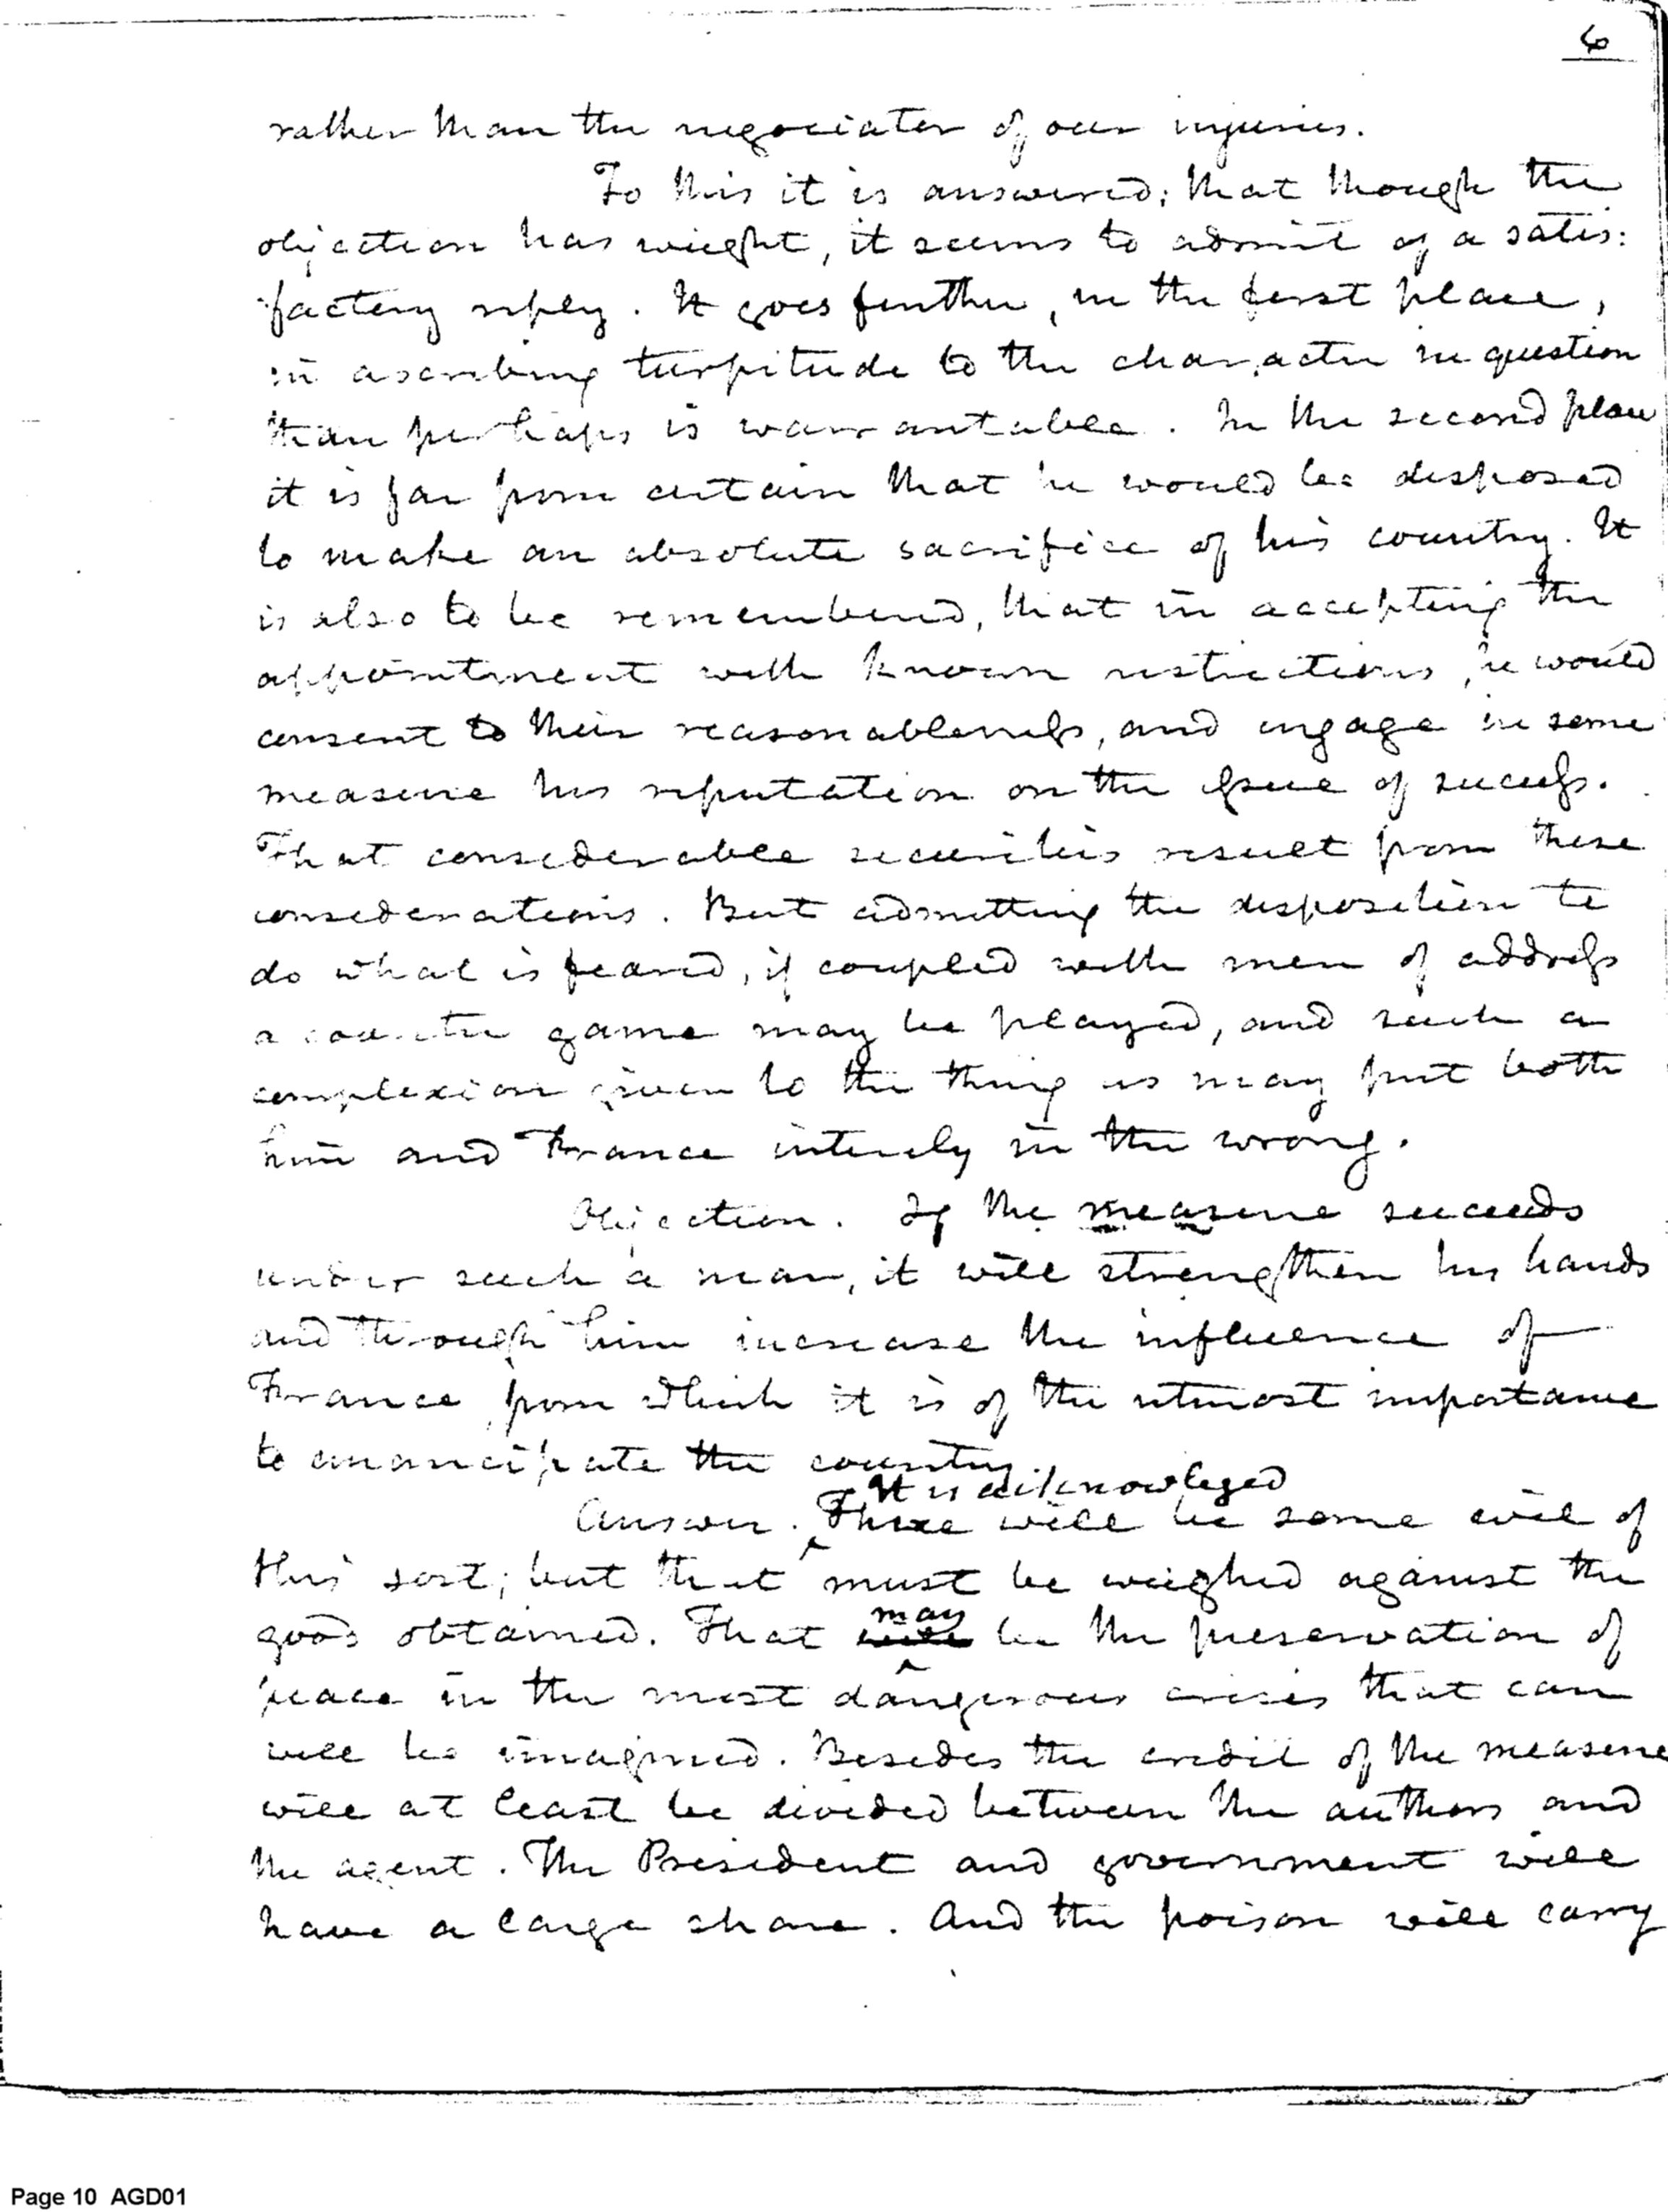 6
rather than the negociator of our injuries.
To this it is answered; that though the
objection has weight, it seems to admit of a satis:
factory reply. It goes further, in the first place,
in ascribing turpitude to the character in question
than perhaps is warrantable. In the second place
it is far from certain that he would be disposed
to make an absolute sacrifice of his country. It
is also to be remembered, that in accepting the
appointment with known restrictions, he would
consent to their reasonableness, and engage in some
measure his reputation on the issue of success.
That considerable securities result from these
considerations. But admitting the disposition to
do what is feared, if coupled with men of address
a counter game may be played, and such a
complexion given to the thing as may put both
him and France intirely in the wrong.
Objection. If the measure succeeds
under such a man, it will strengthen his hands
and through him increase the influence of
France, from which it is of the utmost importance
to emancipate the country.
It is acknowleged
Answer. There will be some evil of
this sort; but that must be weighed against the
may
good obtained. That will be the preservation of
peace in the most dangerous crisis that can
well be imagined. Besides the credit of the measure
will at least be divided between the authors and
the agent. The President and government will
have a large share. And the poison will carry
Page 10 AGD01